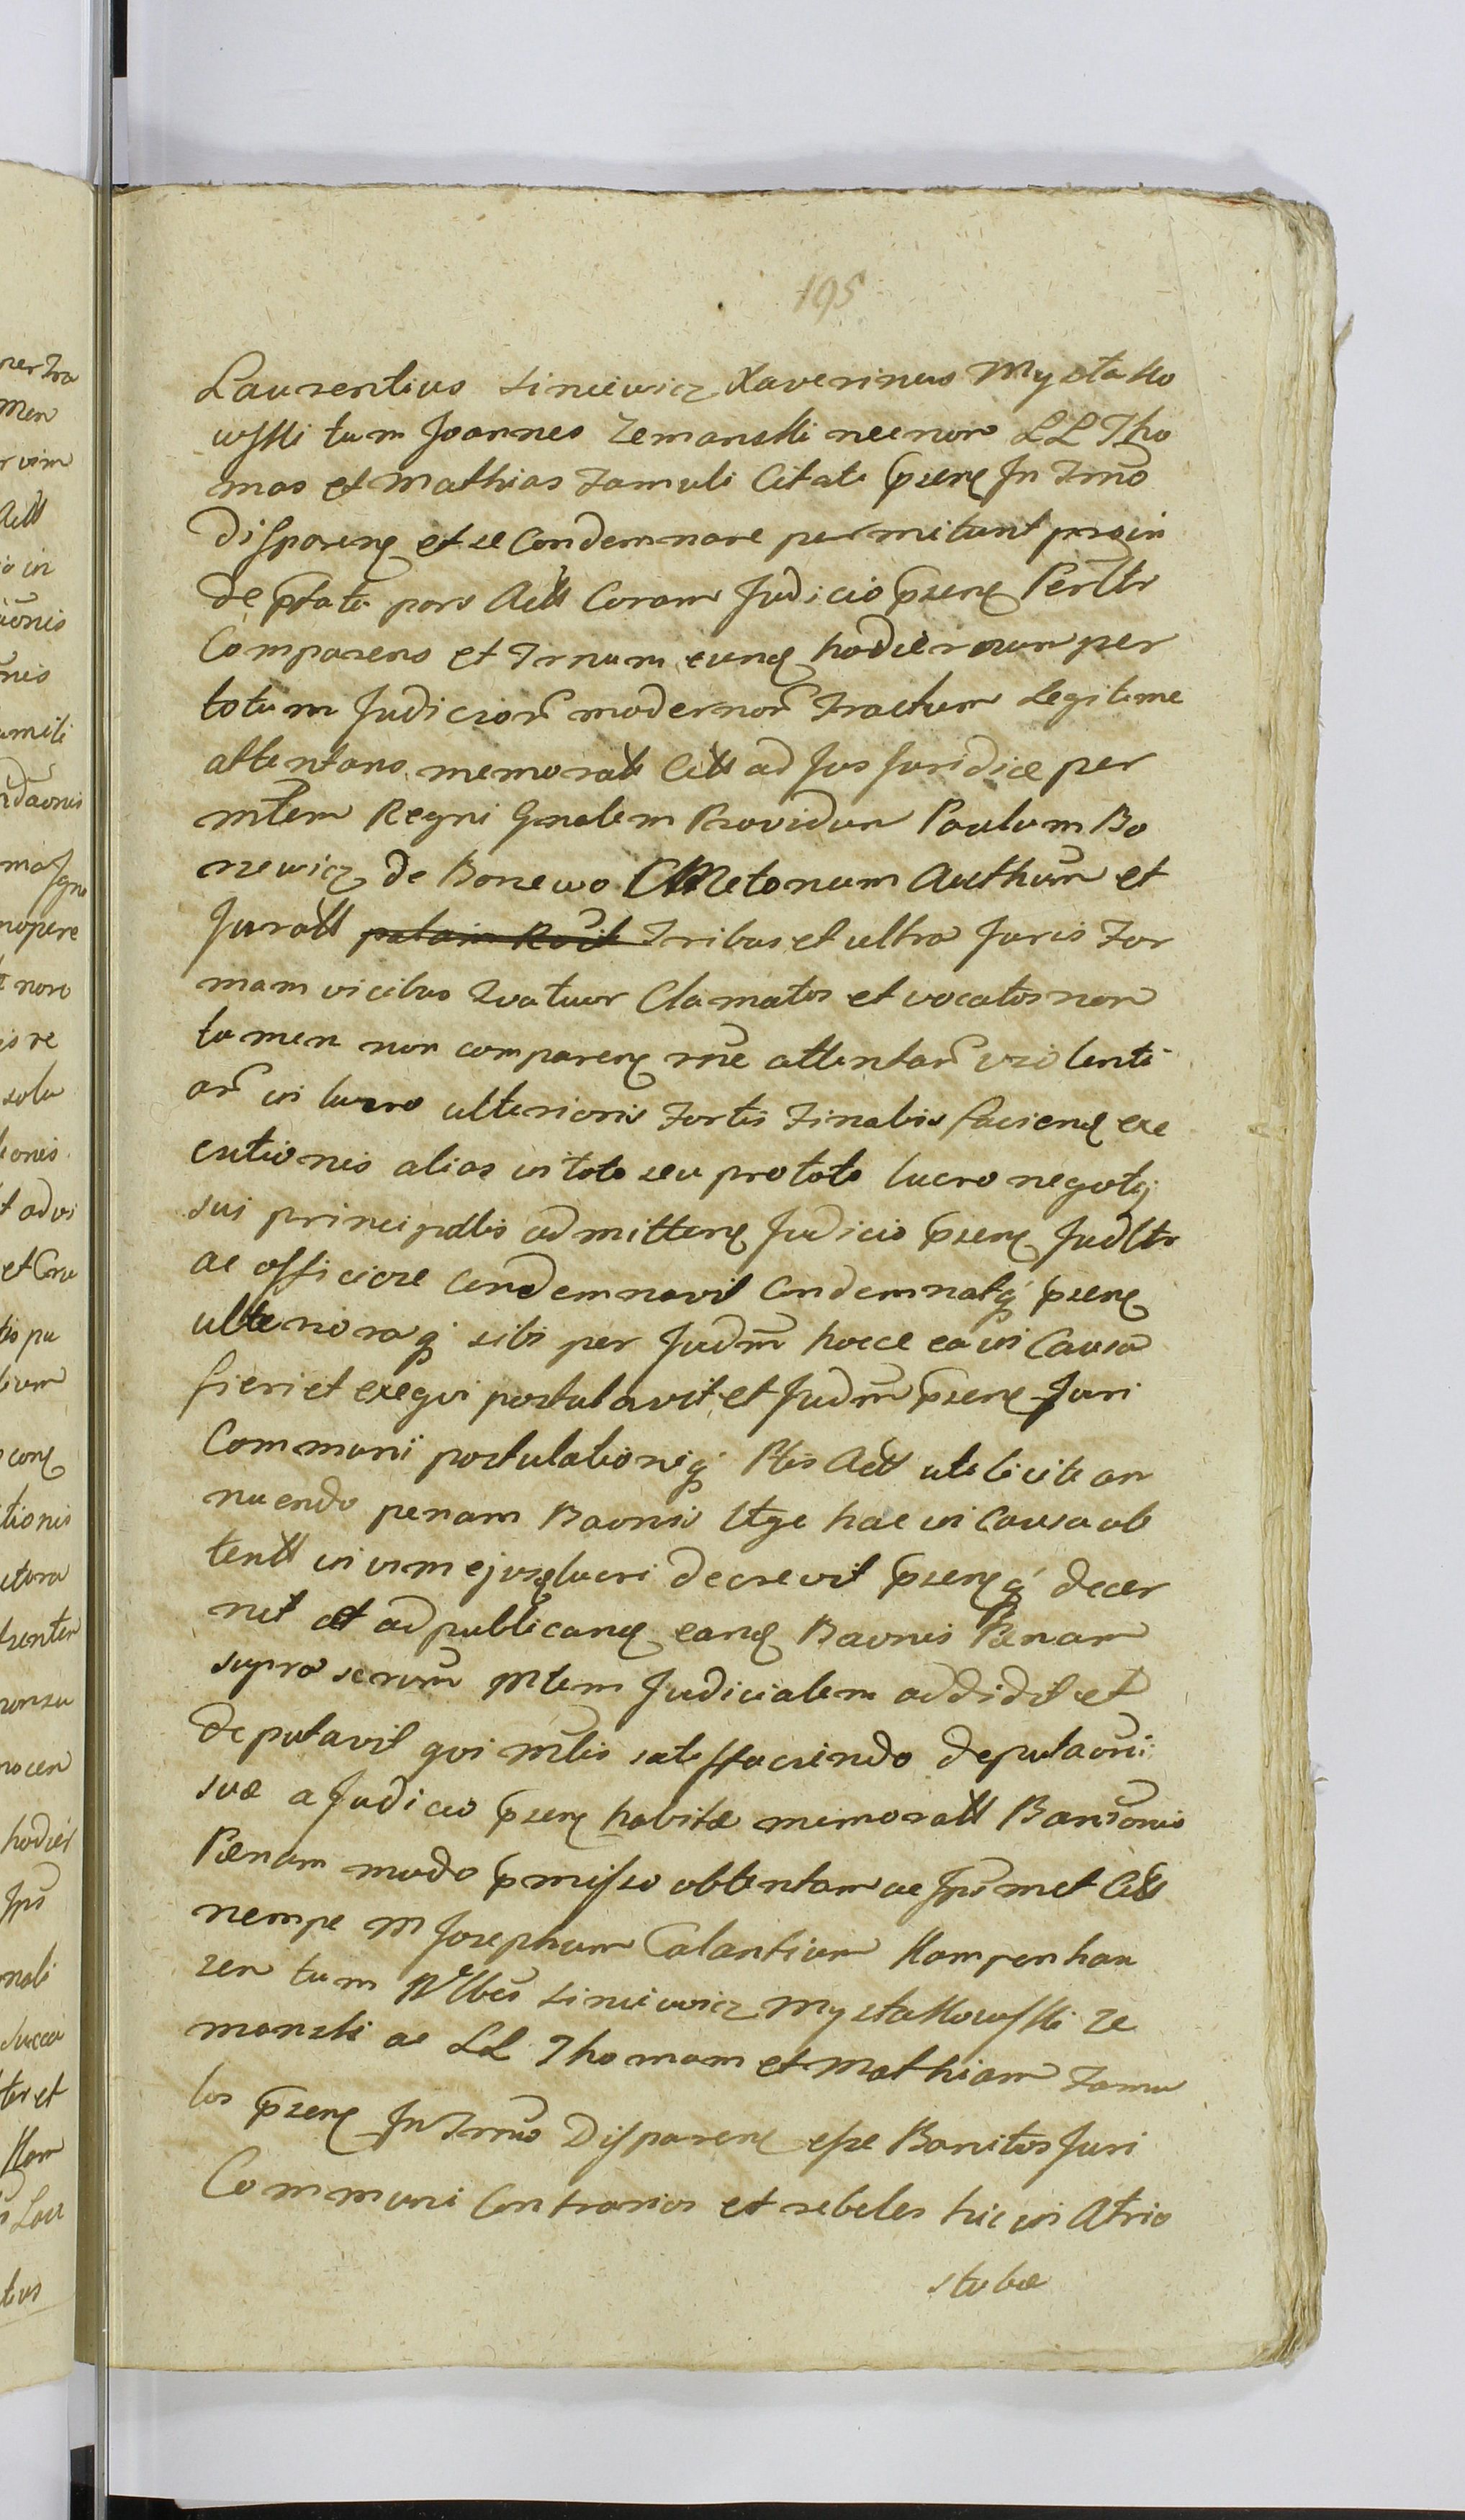 195
Laurentius Siniewicz Xaverinus Mysta Ko
wski tum Joannes Zemanski necnon LL Tho
mas et Mathias Famuli Citati psenq In Trno
disparenq et se Condemnare permitunt proin
de pfata pars Actt Coram Judicio psenq Perltr
Comparens et Trnum eunq hodiernum per
totum Judicior modernor Tractum Legitime
attentans memoratt Citt ad Jus Juridice per
mlem Regni Gnalem Providum Paulum Bo
rzewicz de Bonewo CMetonum Authum et
Juratt Tribus et ultra Juris For
mam vicibus Quatuor Clamatos et vocatos non
tamen non comparenq rne attentar violenti
ar in lucro ulterioris Fortis Finalis facienq exe
cutionis alias in toto seu pro toto lucro negotij
sui principalis admittenq Judicio psenq Judltr
ac officiose condemnavit Condemnatq psenq
ulterioraq sibi per Judm hocce ea in Causa
fieri et exequi postulavit et Judm psenq Juri
Communi postulationiq Ptis Actt uti licite an
nuendo penam Baonis Itge hac in Causa ob
tentt in vim ejusq lucri decrevit psenqq decer
nit et ad publicanq eanq Baonis Pænam
supra scrum Mlem Judicialem addidit et
deputavit qui mlis satisfaciendo deputaoni
suæ a Judicio psenq habitæ memoratt Bannonis
Pænam modo pmisso obtentam ac Ipsmet Citt
nempe M Josephum Calantium Kampenhau
zen tum Nlbus Siniewicz Mystakowski Ze
manski ac LL Thomam et Mathiam Famu
los psenq In Trno Disparenq esse Banitos Juri
Communi Contrarios et rebeles hic in Atrio
stubæ